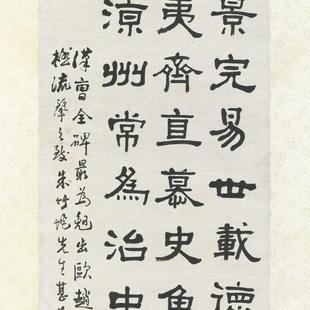 景完易世載德
夷齊直慕史魚
涼州常為治中
漢曹全碑最為勉出歐趙
流聲之致朱竹垞先生甚